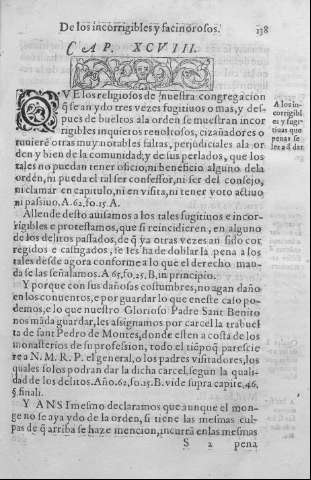 De los incorrigibles y facinorosos. 138
CAP. XCVIII.
QVE los religiosos de nuestra congregacion
q̃ se an ydo tres vezes fugitiuos o mas, y des-
pues de bueltos ala orden se muestran incor
rigibles inquietos reuoltosos, cizañadores o
tuuierẽ otras muy notables faltas, perjudiciales ala or
den y bien de la comunidad; y de sus perlados, que los
tales no puedan tener oficio, ni beneficio alguno dela
orden, ni pueda el tal ser confessor, ni ser del consejo,
ni clamar en capitulo, ni en visita, ni tener voto actiuo
ni passiuo. A. 62. fo. 15. A.
A los in-
corrigibl
es y fugi-
tiuos que
penas se
les a d̃ dar.
Allende desto auisamos a los tales fugitiuos e incor-
rigibles e protestamos, que si reincidieren, en alguno
de los delitos passados, de q̃ ya otras vezes an sido cor
regidos e castigados, se les ha de doblar la pena a los
tales desde agora conforme a lo que el derecho man-
da se las señalamos. A 65, fo, 25. B, in principio.
Y porque con sus dañosas costumbres, no agan daño
en los conuentos, e por guardar lo que eneste caso po-
demos, e lo que nuestro Glorioso Padre Sant Benito
nos mãda guardar, les assignamos por carcel la trabuel
ta de sant Pedro de Montes, donde esten a costa de los
monasterios de su profession, todo el tiẽpo q̃ parescie
re a N. M. R. P. el general, o los padres visitadores, los
quales solos podran dar la dicha carcel, segun la quali-
dad de los delitos. Año. 62, fo. 25. B. vide supra capite, 46,
§. finali.
Y ANSI mesmo declaramos que aunque el mon-
ge no se aya ydo de la orden, si tiene las mesmas cul-
pas de q̃ arriba se haze mencion, incurra en las mesmas
S 2 pena